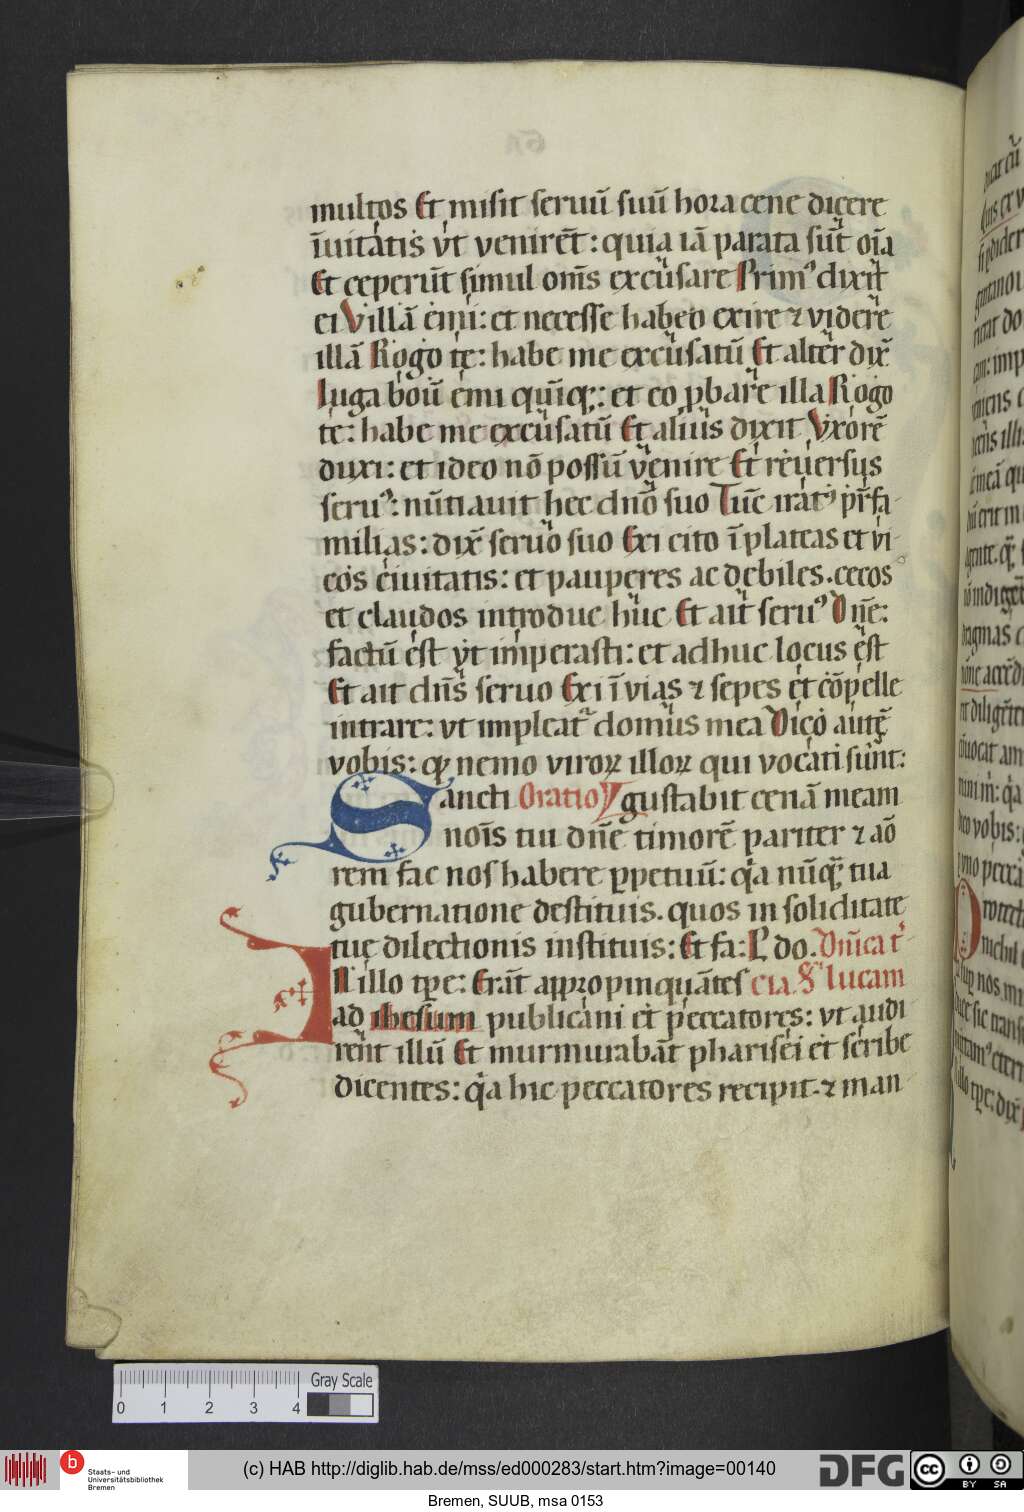 multos Et misit seruū suū hora cene dicere
īuitatis vt venirēt: quia iā parata sūt oīa
Et ceperūt simul om̄s excusare Primꝰ dixit
ei Villā emi: et necesse habeo exire ⁊ videre
illā Rogo te: habe me excusatū Et alter dix̄
Iuga boū emi quīqꝫ: et eo ꝓbare illa Rogo
te: habe me excusatū Et alius dixit Vxorē
duxi: et ideo nō possū venire Et reuersus
seruꝰ: nūtiauit hec dn̄o suo Tūc iratꝰ pr̄fa-
milias: dix̄ seruo suo Exi cito ī plateas et vi-
cos ciuitatis: et pauperes ac debiles. cecos
et claudos introduc huc Et ait seruꝰ Dn̄e:
factū est vt imperasti: et adhuc locus est
Et ait dn̄s seruo Exi ī vias ⁊ sepes et cōpelle
intrare: vt impleatᷣ domus mea Dico autē
vobis: ꝙ nemo viroꝝ illoꝝ qui vocati sunt:
Sancti Oratio gustabit cenā meam
nōis tui dn̄e timorē pariter ⁊ aō
rem fac nos habere ꝑpetuū: q̄a nūq̄ tua
gubernatione destituis. quos in soliditate
tuę dilectionis instituis: Et fa: P do. Dn̄ica t᷑
In illo tp̄e: Erāt appropinquātes cia. S lucam
ad ihesum publicani et peccatores: vt audi
rent illū Et murmurabāt pharisei et scribe
dicentes: q̄a hic peccatores recipit. ⁊ man
0 1 2 3 4 Gray Scale
b Staats- und
Universitätsbibliothek
Bremen
(c) HAB http://diglib.hab.de/mss/ed000283/start.htm?image=00140
DFG
cc BY SA
Bremen, SUUB, msa 0153